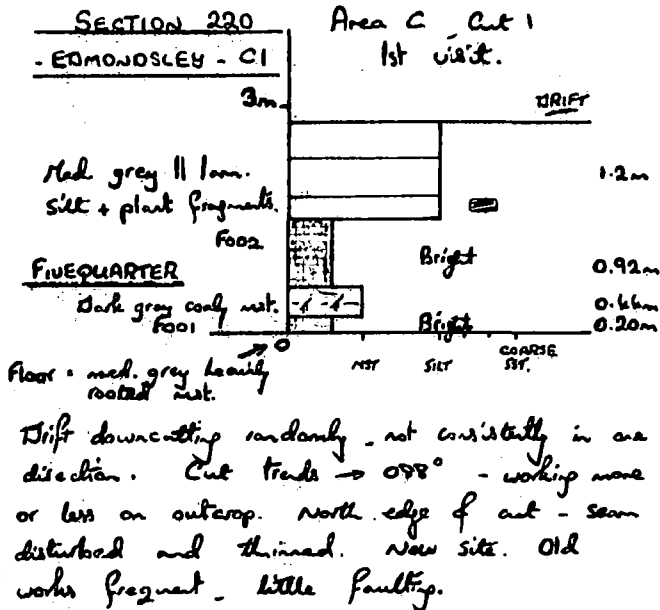 SECTION 220
Area C Cut 1
- EDMONDSLEY - C1
1st visit.
3m
DRIFT
Med. grey || lam.
1.2m
Silt + plant fragments.
F002
Bright
0.92m
FIVEQUARTER
Dark grey coaly mst.
0.44m
F001
Bright
0.20m
0
MST SILT COARSE SST.
Floor = med. grey heavily
rooted mst.
Drift downcutting randomly - not consistently in one
direction. Cut trends → 088° - working more
or less on outcrop. North edge of cut - seam
disturbed and thinned. New site. Old
works frequent - little faulting.